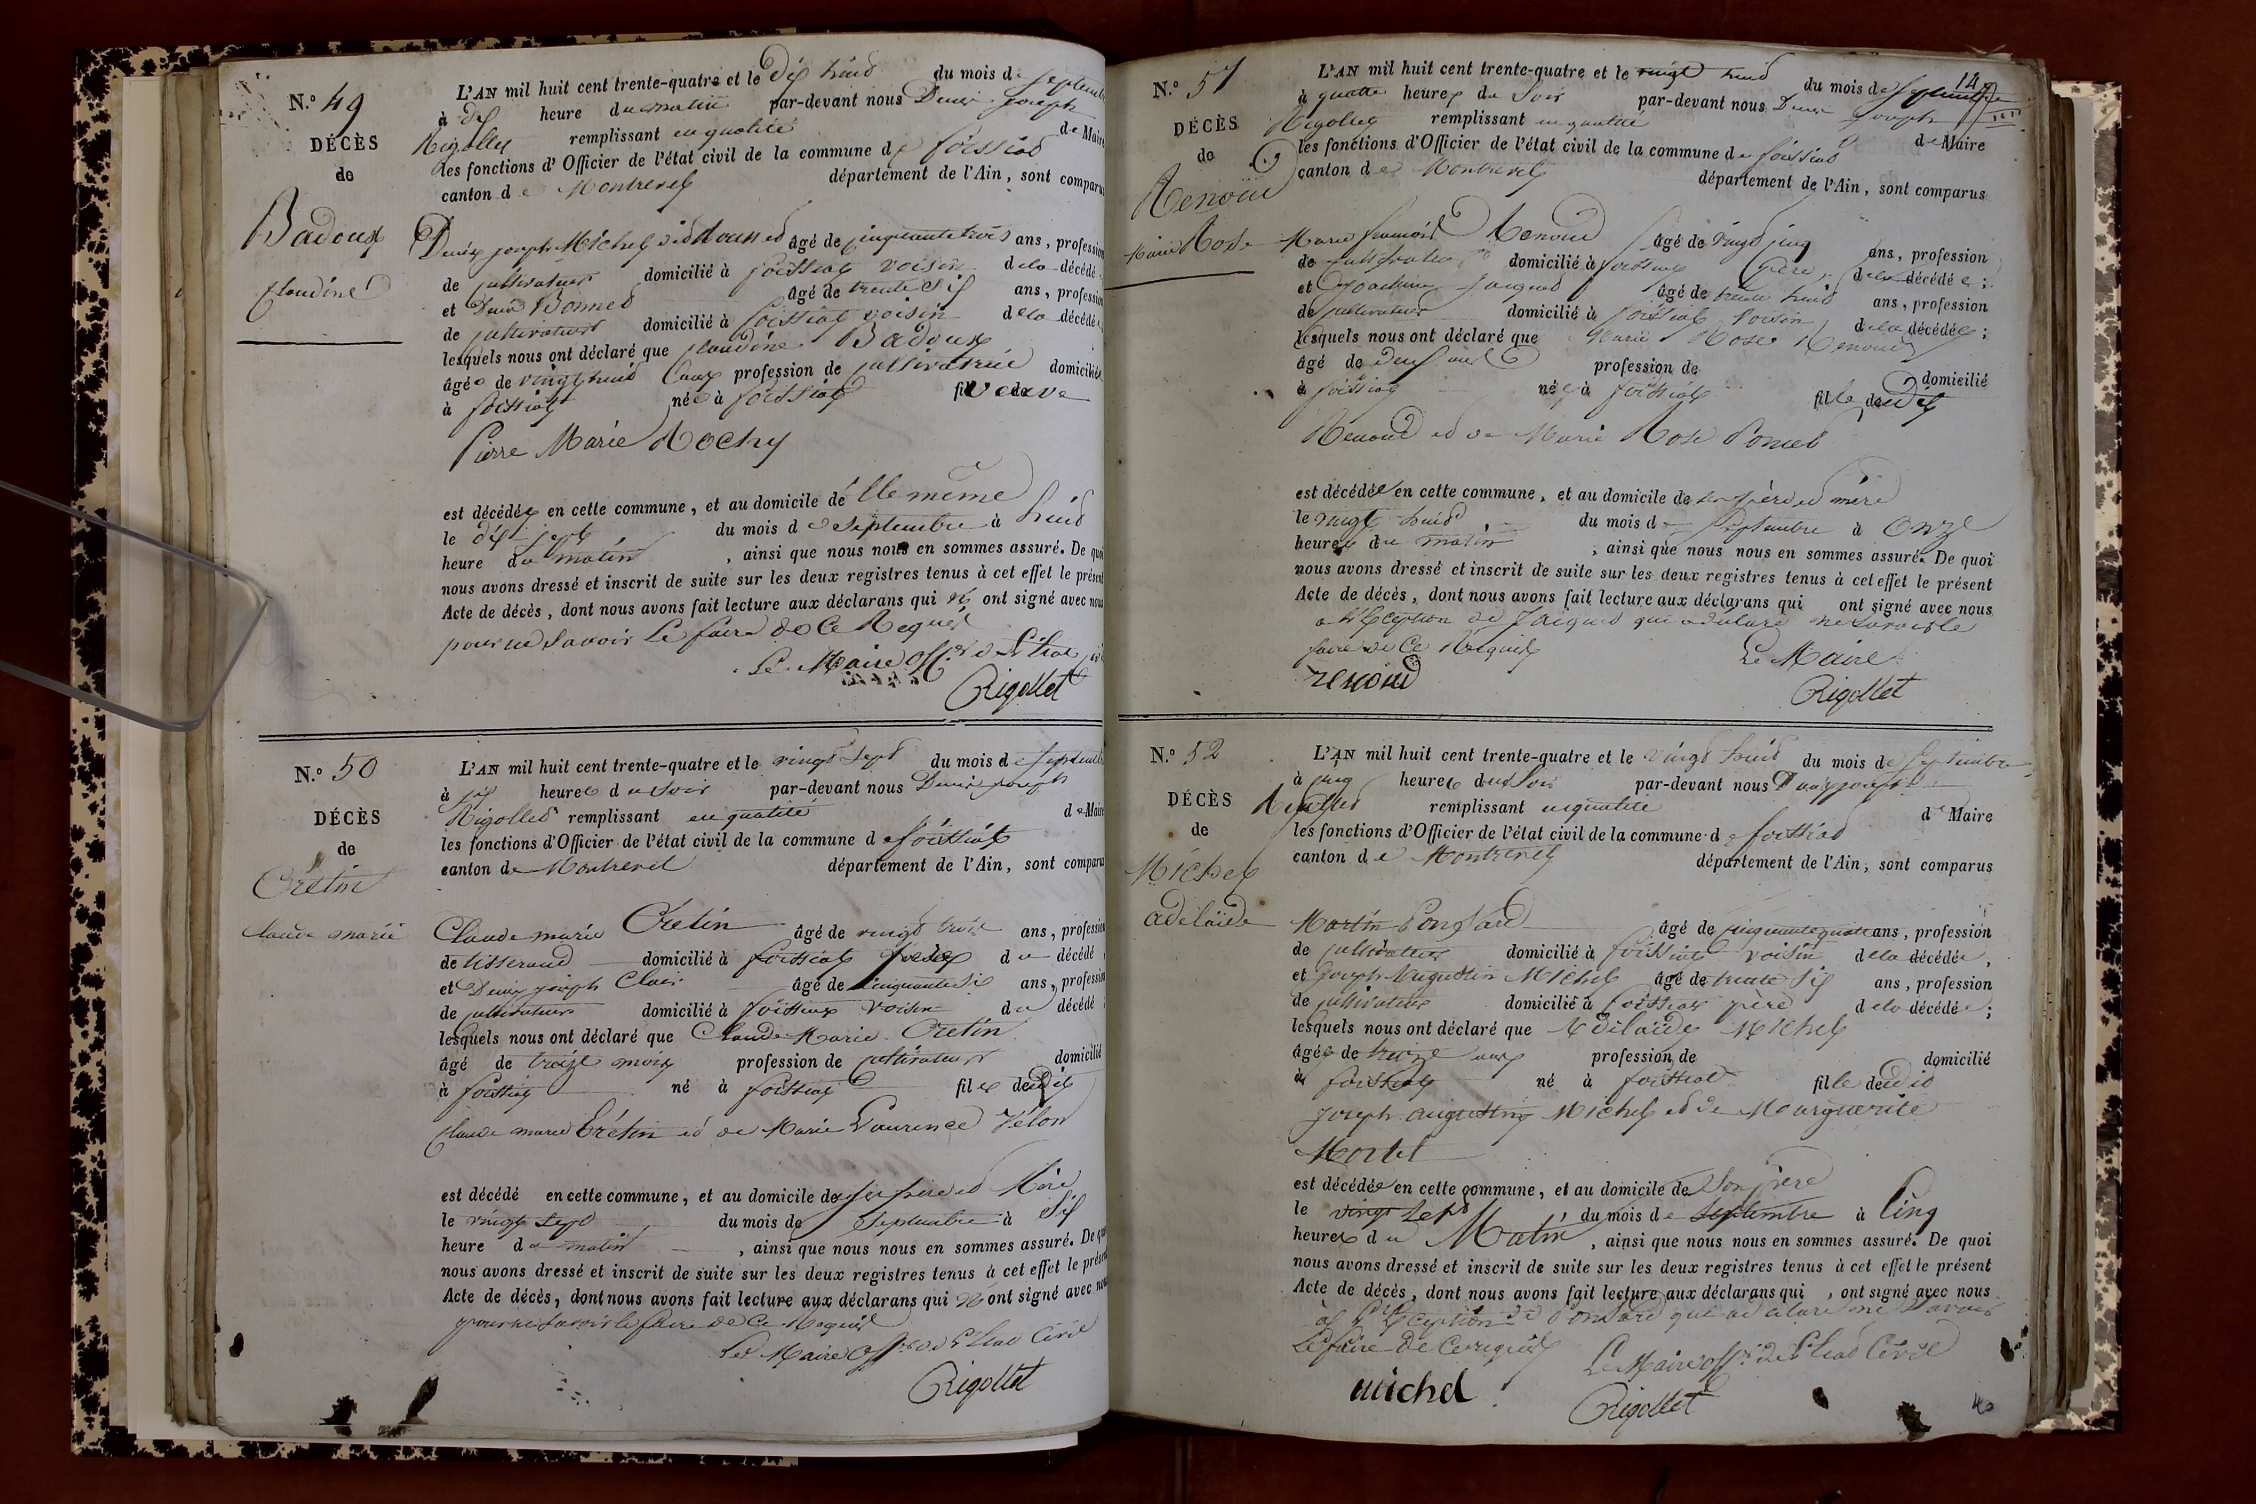 N.° 49
DÉCÈS
de
Badoux
Claudine
L'AN mil huit cent trente-quatre et le dix huit du mois de septembre
à dix heure du matin par-devant nous Denis Joseph
Rigollet remplissant en qualité de Maire
les fonctions d'Officier de l'état civil de la commune de foissiat
canton de Montrevel département de l'Ain, sont comparus
Denis joseph Michel âgé de cinquante trois ans, profession
de cultivateur domicilié à foissiat voisin de la décédé
et Denis Bonnet âgé de trente six ans, profession
de cultivateur domicilié à foissiat voisin de la décédé
lesquels nous ont déclaré que claudine Badoux
âgée de vingt huit ans profession de cultivatrice domiciliée
à foissiat née à foissiat veuve
Pierre Marie Rochy
est décédée en cette commune, et au domicile de Elle même
le dix sept du mois de septembre à huit
heure du matin, ainsi que nous nous en sommes assuré. De quoi
nous avons dressé et inscrit de suite sur les deux registres tenus à cet effet le présent
Acte de décès, dont nous avons fait lecture aux déclarans qui n'ont signé avec nous
pour ne savoir le faire de ce Requis
Le Maire off.er de l'état civil
Rigollet
N.° 50
DÉCÈS
de
Crétin
Claude marie
L'AN mil huit cent trente-quatre et le vingt sept du mois de septembre
à six heures du soir par-devant nous Denis joseph
Rigollet remplissant en qualité de Maire
les fonctions d'Officier de l'état civil de la commune de foissiat
canton de Montrevel département de l'Ain, sont comparus
Claude marie Cretin âgé de vingt trois ans, profession
de tisserand domicilié à foissiat du décédé
et Denis joseph Clair âgé de cinquante six ans, profession
de cultivateur domicilié à foissiat voisin du décédé
lesquels nous ont déclaré que Claude Marie Cretin
âgé de treize mois profession de cultivateur domicilié
à foissiat né à foissiat fils dudit
Claude marie Crétin et de Marie Laurence Vélon
est décédé en cette commune, et au domicile de ses père et Mère
le vingt sept du mois de septembre à six
heure du matin, ainsi que nous nous en sommes assuré. De quoi
nous avons dressé et inscrit de suite sur les deux registres tenus à cet effet le présent
Acte de décès, dont nous avons fait lecture aux déclarans qui n'ont signé avec nous
pour ne savoir le faire de ce Requis
Le Maire off.er de l'état Civil
Rigollet
14
N.° 51
DÉCÈS
de
Renoud
Marie Rose
L'AN mil huit cent trente-quatre et le vingt huit du mois de septembre
à quatre heures du soir par-devant nous Denis Joseph
Rigollet remplissant en qualité de Maire
les fonctions d'Officier de l'état civil de la commune de foissiat
canton de Montrevel département de l'Ain, sont comparus
Marie françois Renoud âgé de vingt cinq ans, profession
de cultivateur domicilié à foissiat père de la décédée;
et Joachim Jaiques âgé de trente huit ans, profession
de cultivateur domicilié à foissiat voisin de la décédée;
lesquels nous ont déclaré que Marie Rose Renoud
âgé de deux ans profession de domicilié
à foissiat née à foissiat fille dudit
Renoud et de Marie Rose Poncet
est décédée en cette commune, et au domicile de ses père et mère
le vingt huit du mois de septembre à onze
heures du matin, ainsi que nous nous en sommes assuré. De quoi
nous avons dressé et inscrit de suite sur les deux registres tenus à cet effet le présent
Acte de décès, dont nous avons fait lecture aux déclarans qui ont signé avec nous
a l'exception de Jaiques qui a déclaré ne savoir le
faire de ce Requis
Le Maire
renoud
Rigollet
N.° 52
DÉCÈS
de
Michel
adelaïde
L'AN mil huit cent trente-quatre et le vingt huit du mois de septembre
à cinq heures du soir par-devant nous Denis joseph
Rigollet remplissant en qualité de Maire
les fonctions d'Officier de l'état civil de la commune de foissiat
canton de Montrevel département de l'Ain, sont comparus
Martin Ponsard âgé de cinquante quatre ans, profession
de cultivateur domicilié à foissiat voisin de la décédée,
et Joseph Augustin Michel âgé de trente six ans, profession
de cultivateur domicilié à foissiat père de la décédée;
lesquels nous ont déclaré que Adélaïde Michel
âgée de treize ans profession de domicilié
à foissiat né à foissiat fille dudit
joseph augustin Michel et de Marguerite
Mortel
est décédée en cette commune, et au domicile de son père
le vingt sept du mois de septembre à Cinq
heures du Matin, ainsi que nous nous en sommes assuré. De quoi
nous avons dressé et inscrit de suite sur les deux registres tenus à cet effet le présent
Acte de décès, dont nous avons fait lecture aux déclarans qui, ont signé avec nous
à l'exception de Ponsard qui a déclaré ne savoir
le faire de ce requis Le Maire off.er de l'état Civil
michel
Rigollet